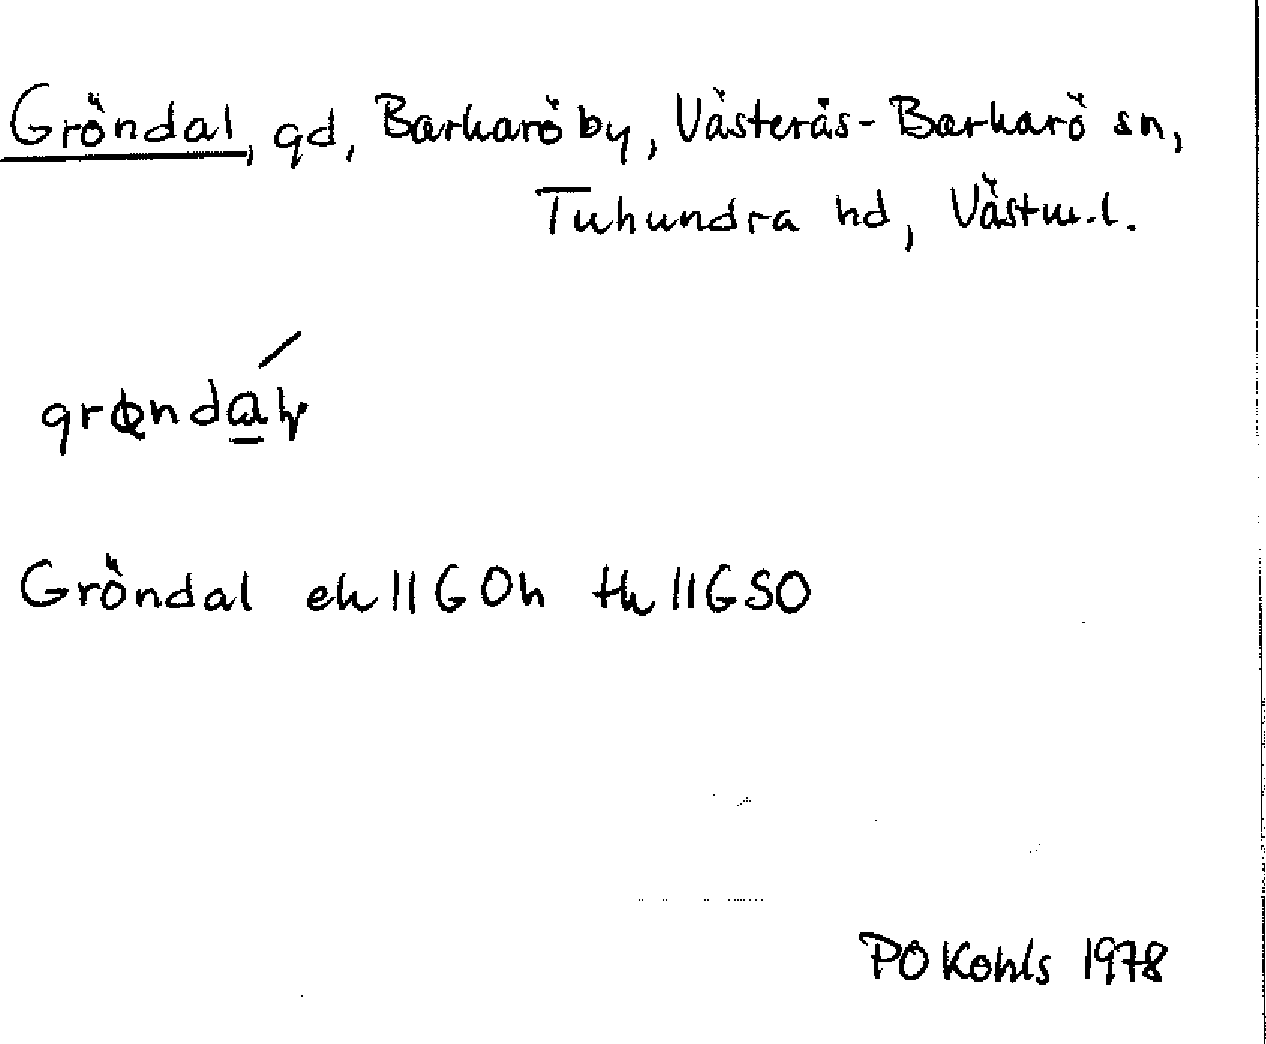 Gröndal, gd, Barkarö by, Västerås-Barkarö sn,
Tuhundra hd, Västm.l.
Gröndal ek 11G 0h tk 11G SO
PO Kohls 1978